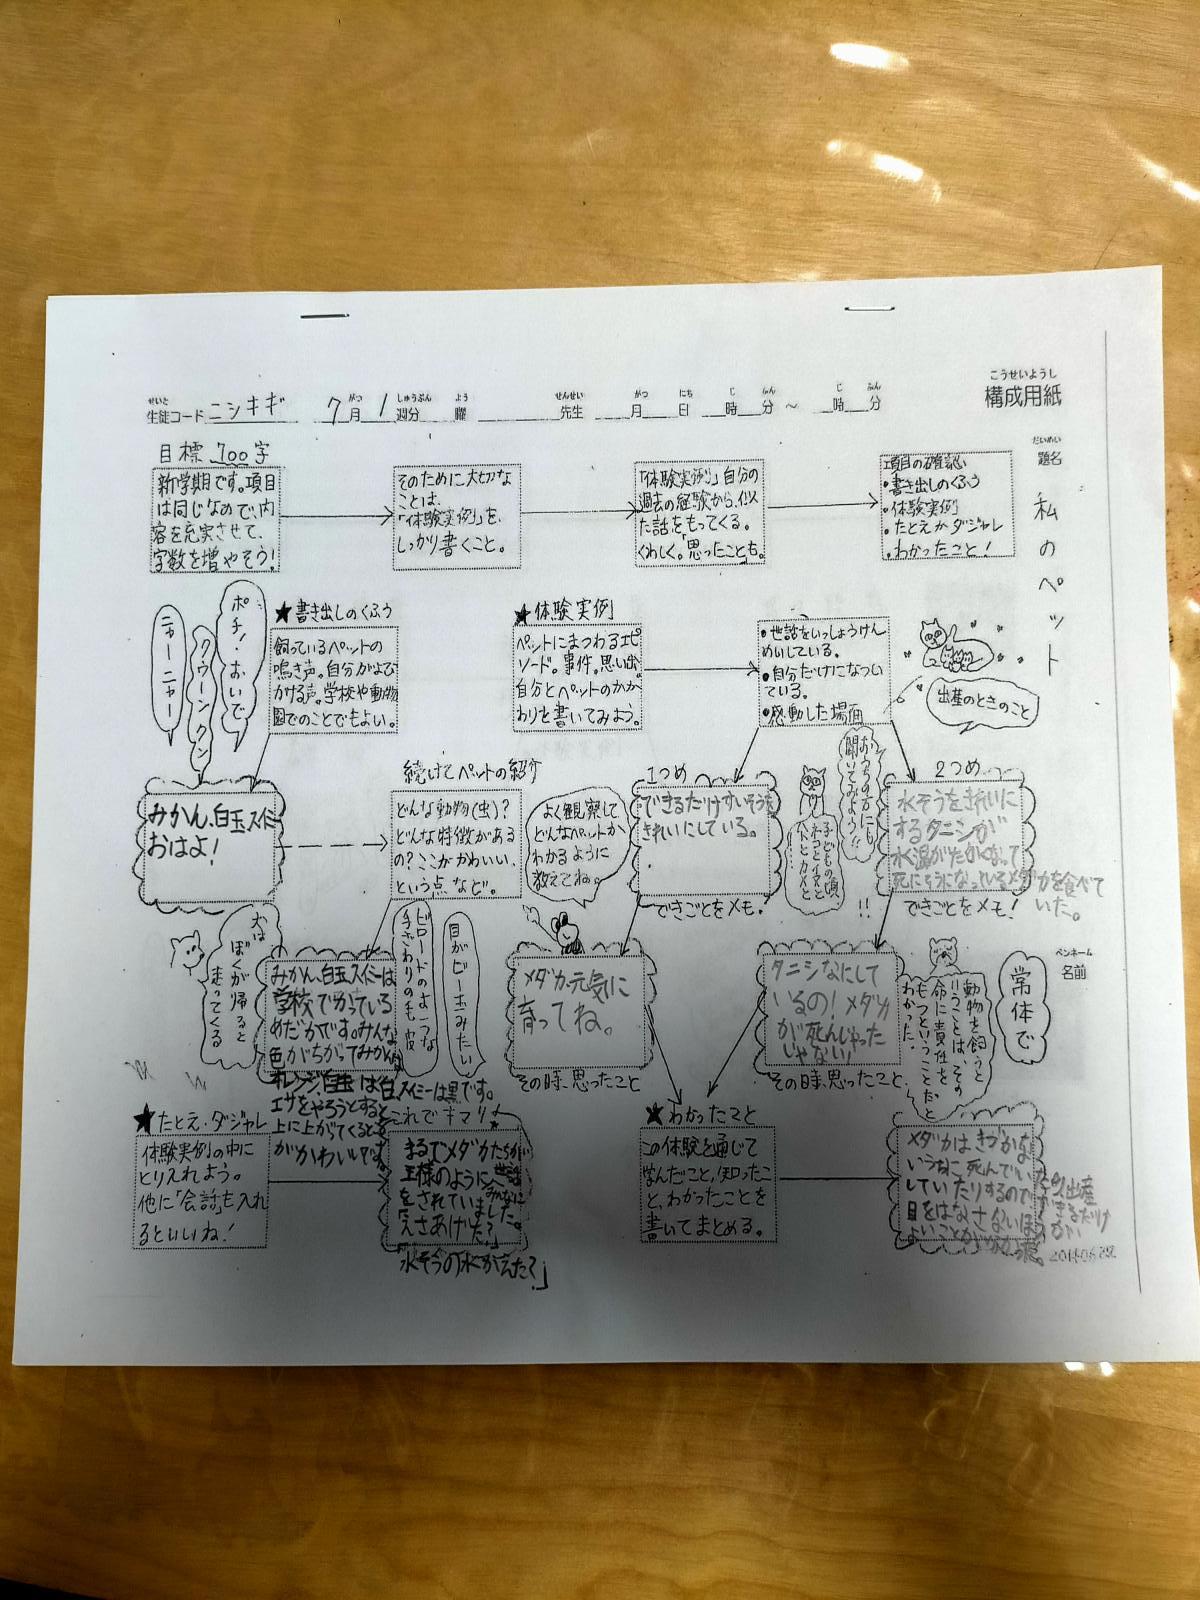 こうせいようし
構成用紙
せいと
生徒コード ニシキギ
がつ しゅうぶん よう
7月 1週分 曜
せんせい
先生
がつ にち じ ふん じ ふん
月 日 時 分 ～ 時 分
だいめい
題名
私のペット
目標 700字
新学期です。項目
は同じなので、内
容を充実させて、
字数を増やそう!
そのために大切な
ことは、
「体験実例」を、
しっかり書くこと。
「体験実例」自分の
過去の経験から、似
た話をもってくる。
くわしく。「思ったことも。
項目の確認
・書き出しのくふう
・体験実例
・たとえかダジャレ
・わかったこと!
ポチ!おいで
クゥーンクン
ニャーニャー
★書き出しのくふう
飼っているペットの
鳴き声。自分がよび
かける声。学校や動物
園でのことでもよい。
★体験実例
ペットにまつわるエピ
ソード。事件。思い出。
自分とペットのかか
わりを書いてみよう。
・世話をいっしょうけん
めいしている。
・自分だけになつい
ている。
・感動した場面
出産のときのこと
みかん、白玉、スイミー
おはよ!
続けてペットの紹介
どんな動物(虫)?
どんな特徴がある
の?ここがかわいい、
という点など。
よく観察して
どんなペットか
わかるように
教えてね。
1つめ
できるだけすいそうを
きれいにしている。
できごとをメモ!
おうちの方にも
聞いてみよう!!
子どもの頃、
ネコとイヌと
ハトとカメと
!!
2つめ
水そうをきれいに
するタニシが
水温がたかくなって
死にそうになっているメダカを食べて
いた。
できごとをメモ!
犬は
ぼくが帰ると
走ってくる
みかん、白玉、スイミーは
学校でかっている
めだかです。みんな
色がちがってみかんは
オレンジ、白玉は白、スイミーは黒です。
エサをやろうとすると
上に上がってくると
がかわいいです。
ビロードのような
手ざわりの毛皮
目がビー玉みたい
メダカ、元気に
育ってね。
その時、思ったこと
タニシなにして
いるの!メダカ
が死んじゃった
じゃない!
その時、思ったこと
動物を飼うと
いうことは、その
命に責任を
もつということだと
わかった。
常体で
ペンネーム
名前
★たとえ・ダジャレ
体験実例の中に
とりいれよう。
他に「会話」も入れ
るといいね!
これでキマリ
まるでメダカたちが
王様のようにみんなに世話
をされていました。
「えさあげた?」
「水そうの水かえた?」
★わかったこと
この体験を通じて
学んだこと、知ったこ
と、わかったことを
書いてまとめる。
メダカはきづかな
いうちに死んでい
たり出産
していたりするので
できるだけ
目をはなさないほうが
よいことがわかった。